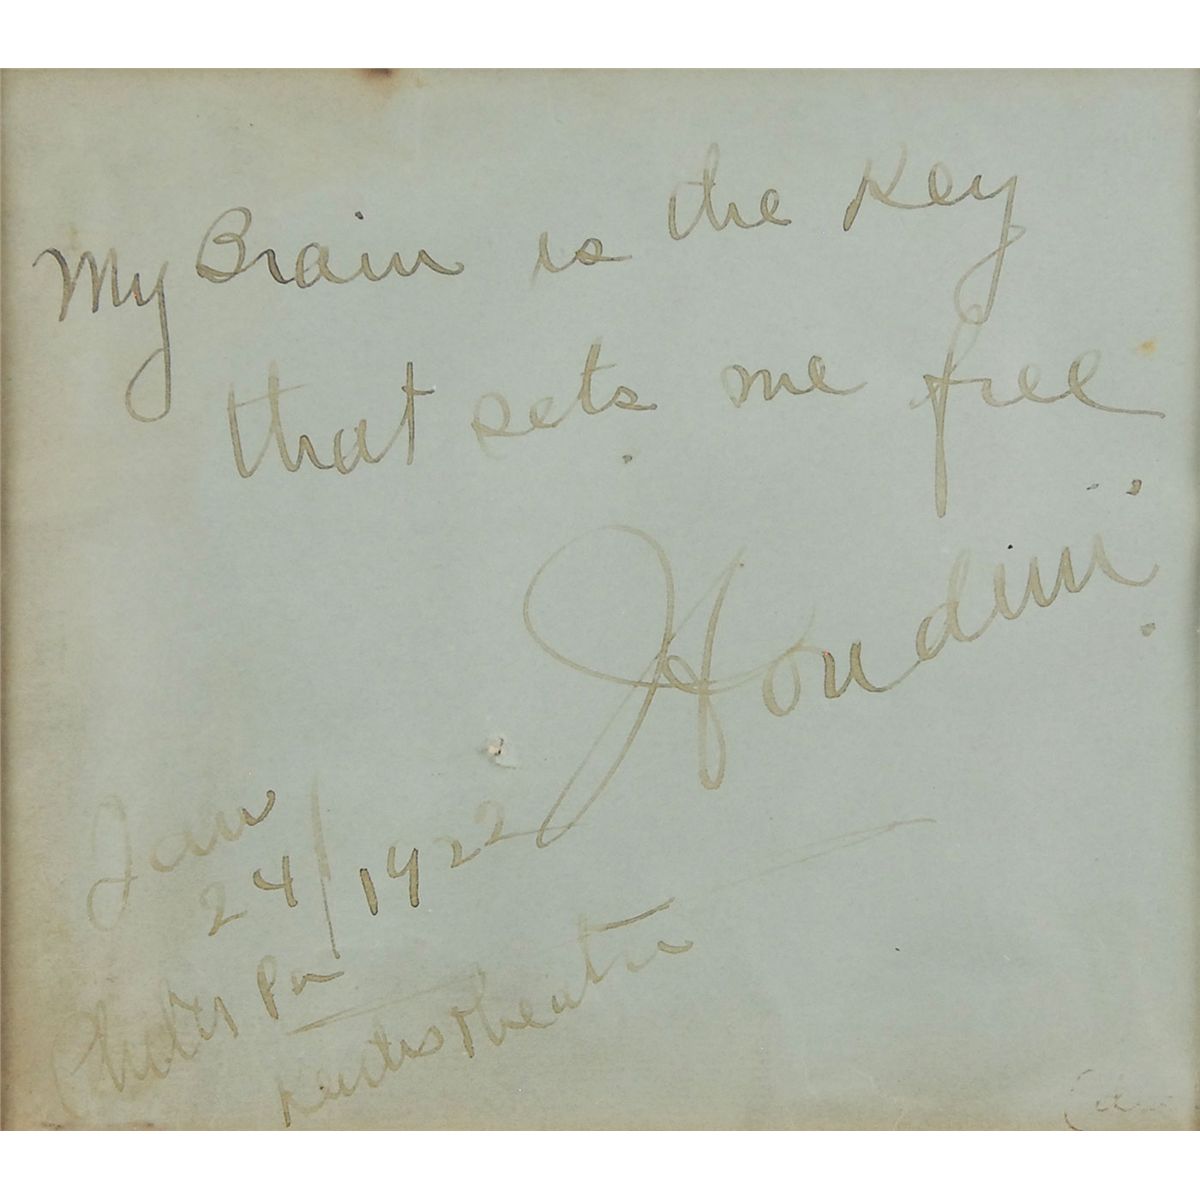 My Brain is the Key
that sets me free
Houdini
Jan
24/1922
Phila Pa
Keiths Theatre